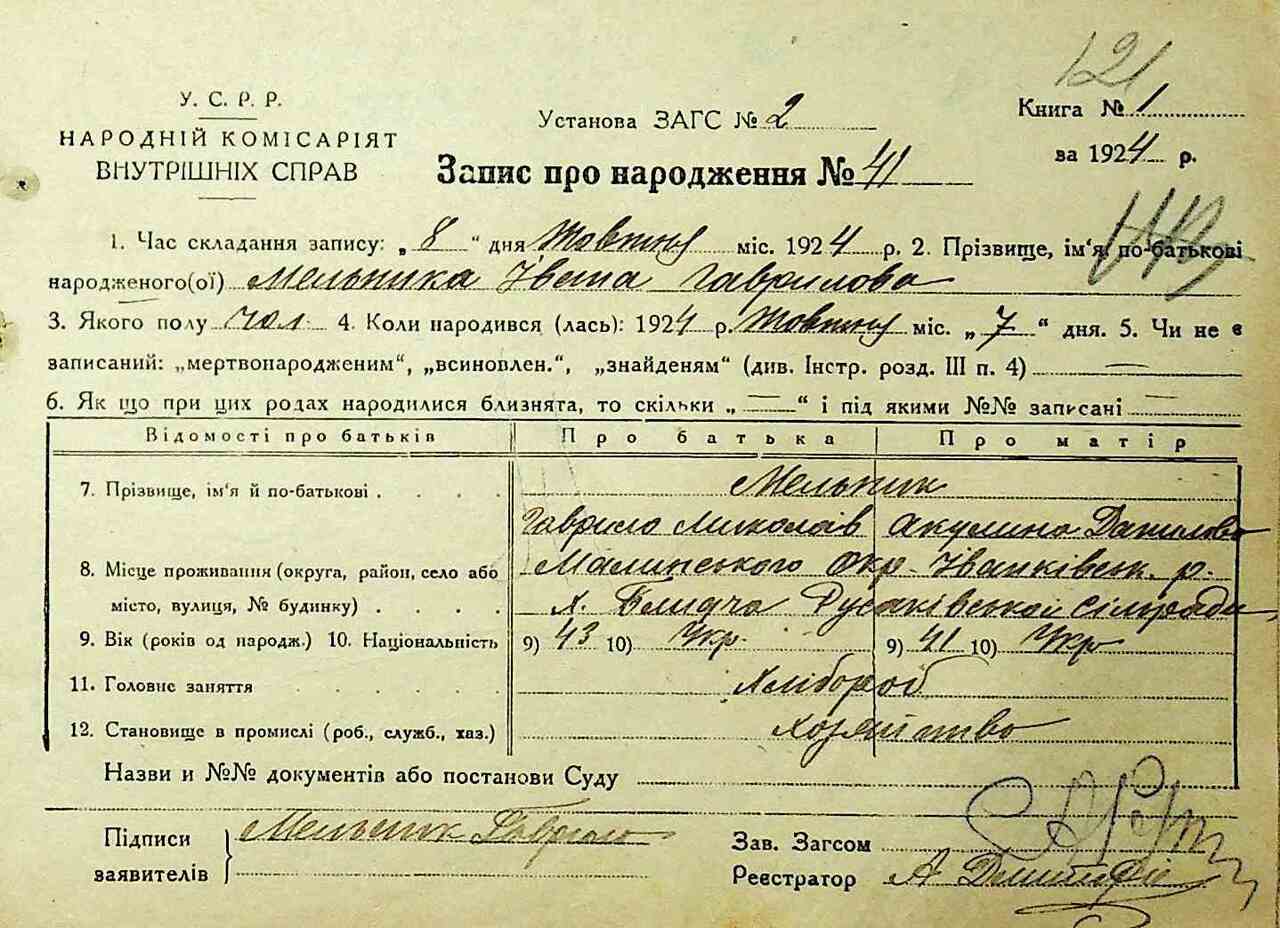 121
У. С. Р. Р.
НАРОДНІЙ КОМІСАРІЯТ
ВНУТРІШНІХ СПРАВ
Установа ЗАГС № 2
Книга № 1
за 1924 р.
Запис про народження № 41
1. Час складання запису: „ 8 “ дня Жовтня міс. 1924 р. 2. Прізвище, ім'я, по-батькові
народженого(ої) Мельника Івана Гаврилова
3. Якого полу чол. 4. Коли народився (лась): 1924 р. Жовтня міс. „ 7 “ дня. 5. Чи не є
записаний: „мертвонародженим“, „всиновлен.“, „знайденям“ (див. Інстр. розд. III п. 4) —
6. Як що при цих родах народилися близнята, то скільки „ — “ і під якими №№ записані —
Відомості про батьків Про батька Про матір
7. Прізвище, ім'я й по-батькові . . . . Мельник
Гаврило Миколаїв Акулина Данилова
8. Місце проживання (округа, район, село або Малинського окр. Іванківськ. р.
місто, вулиця, № будинку) . . . . х. Блидча Русаківської сілради
9. Вік (років од народж.) 10. Національність 9) 43 10) Укр. 9) 41 10) Укр
11. Головне заняття . . . . . Хлібороб
12. Становище в промислі (роб., служб., хаз.) Хозяйство
Назви и №№ документів або постанови Суду
Підписи Мельник Гаврило
заявителів
Зав. Загсом
Реєстратор А